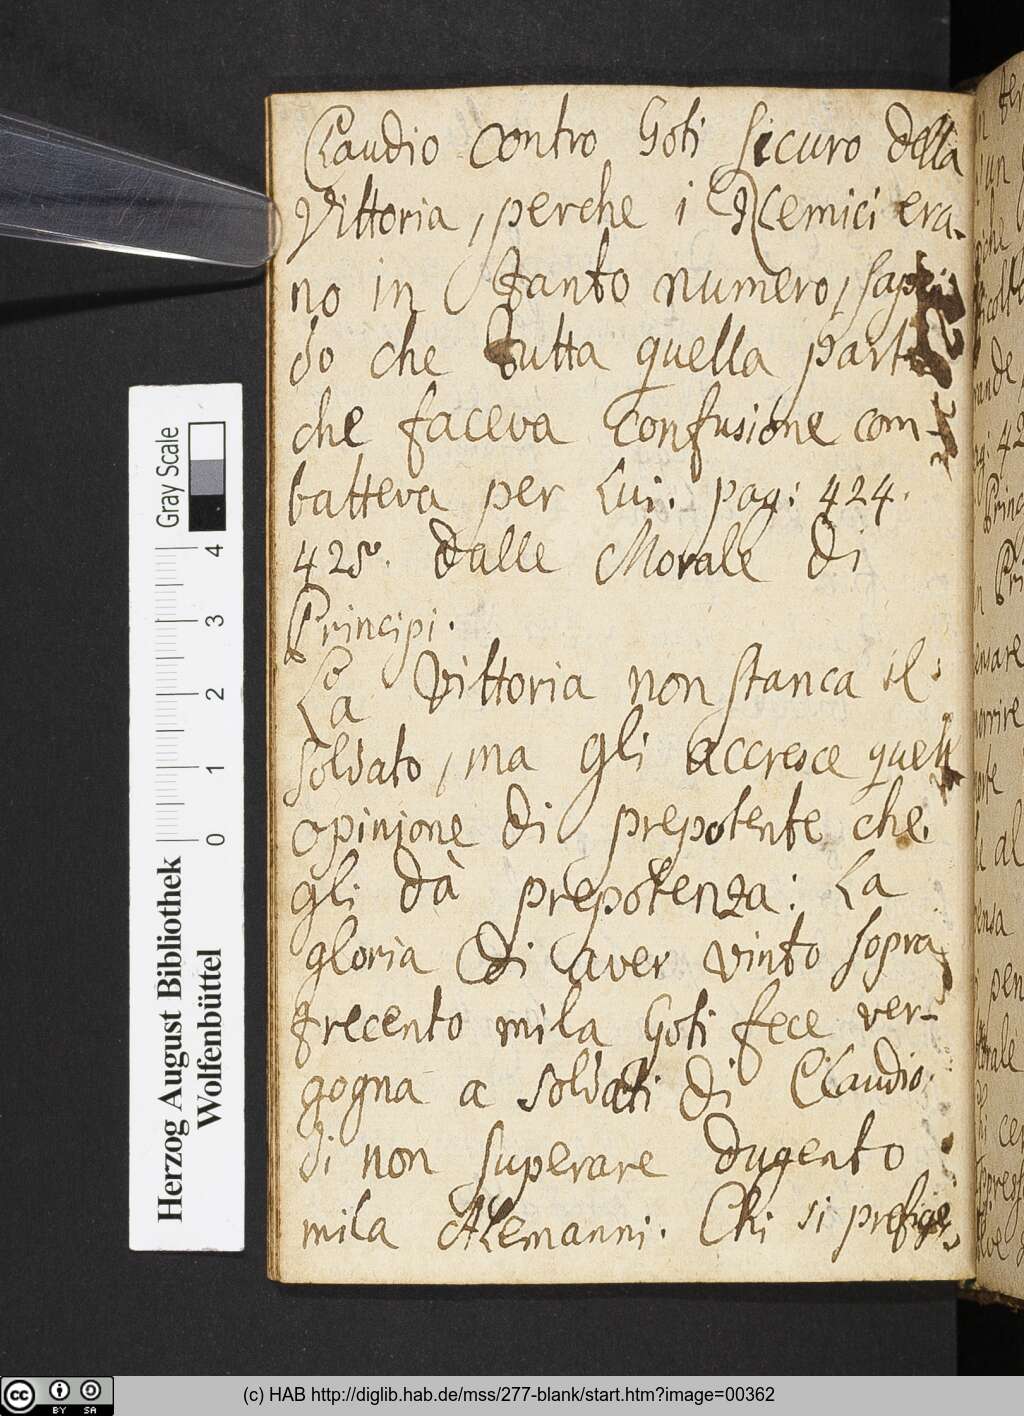 Claudio contro Goti sicuro della
Vittoria, perche i Nemici era-
no in tanto numero, sapen
do che tutta quella parte
che faceva confusione com-
batteva per Lui. pag: 424.
425. dalle Morale di
Principi.
La Vittoria non stanca il
soldato, ma gli accresce quell
opinione di prepotente che
gli dà prepotenza: La
gloria di aver vinto sopra
trecento mila Goti fece ver-
gogna a soldati di Claudio
di non superare dugento
mila Alemanni. Chi si prefige
Gray Scale
0 1 2 3 4
Herzog August Bibliothek
Wolfenbüttel
cc BY SA
(c) HAB http://diglib.hab.de/mss/277-blank/start.htm?image=00362